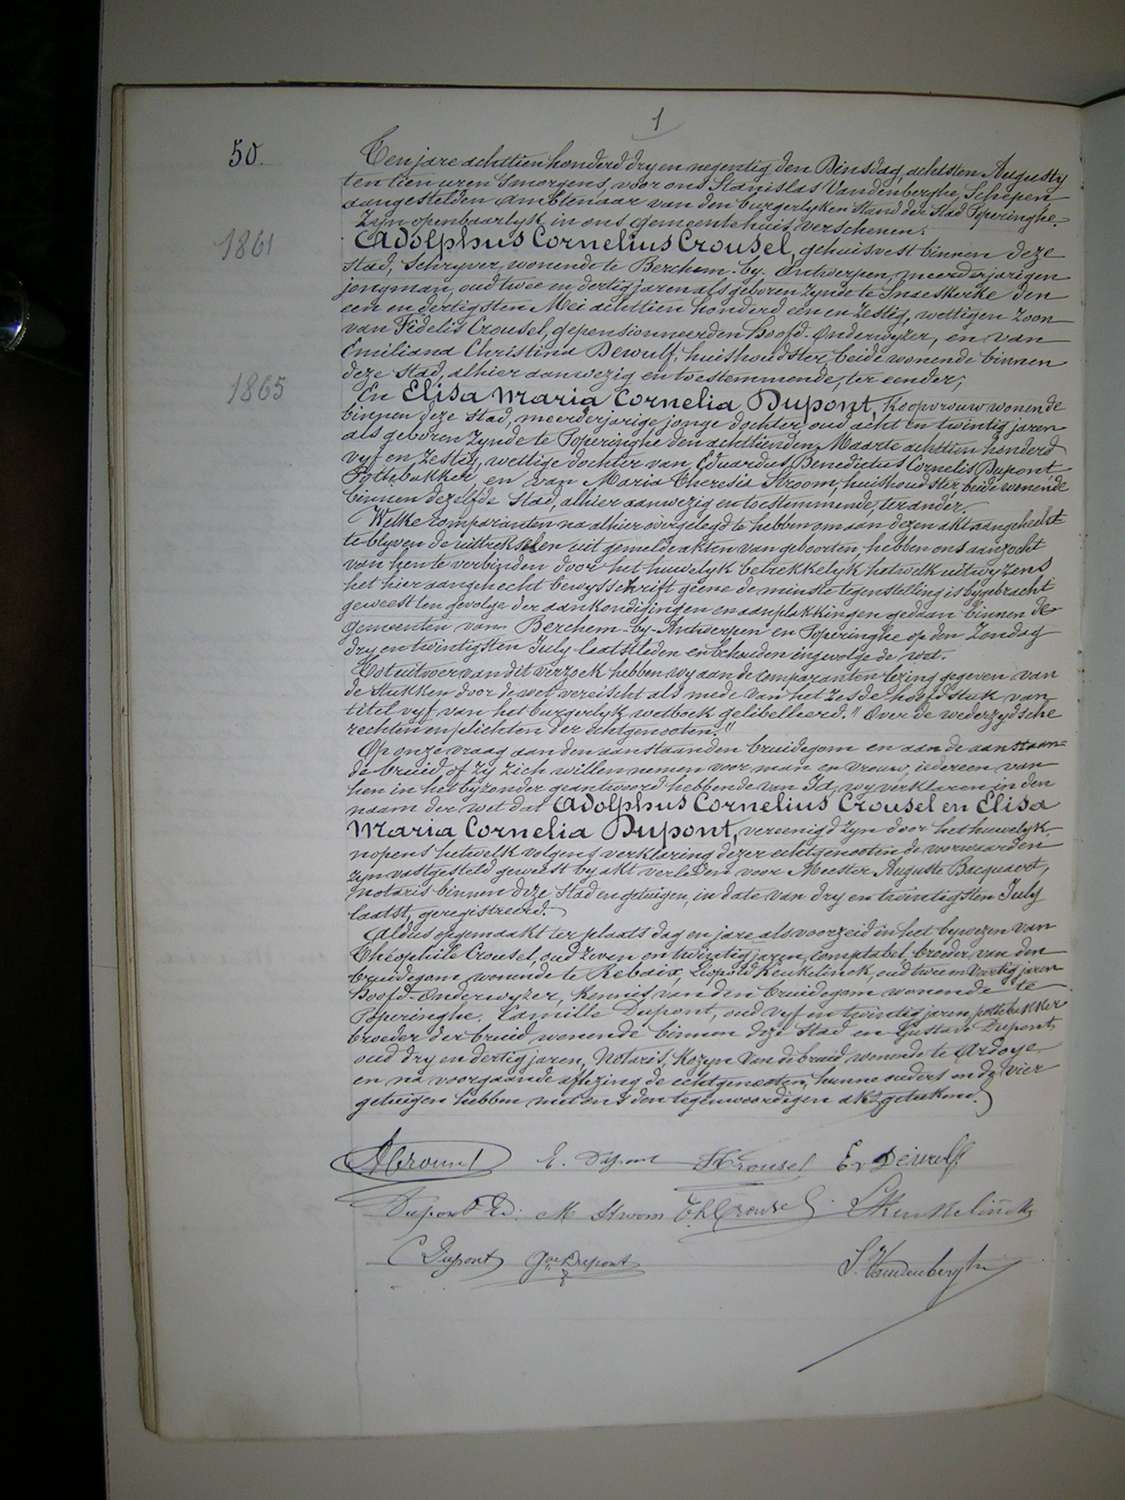 1
50.
Ten jare achttien honderd dry en negentig den Dinsdag achtsten Augusty
ten tien uren 's morgens, voor ons Stanislas Vandenberghe, Schepen
aangestelden Ambtenaar van den burgerlyken Stand der Stad Poperinghe.
Zyn openbaarlyk in ons Gemeentehuis verschenen:
1861
Adolphus Cornelius Crousel, gehuisvest binnen deze
stad, Schryver, wonende te Berchem-by-Antwerpen, meerderjarigen
jongman, oud twee en dertig jaren als geboren zynde te Snaeskerke den
een en dertigsten Mei achttien honderd een en zestig, wettigen zoon
van Fidelis Crousel, gepensionneerden Hoofd-Onderwyzer, en van
Emiliana Christina Dewulf, huishoudster, beide wonende binnen
deze Stad, alhier aanwezig en toestemmende, ter eender;
1865
En Elisa Maria Cornelia Dupont, Koopvrouw wonende
binnen deze stad, meerderjarige jonge dochter oud acht en twintig jaren
als geboren zynde te Poperinghe den achttienden Maarte achttien honderd
vyf en zestig, wettige dochter van Eduardus Benedictus Cornelis Dupont,
Pottebakker, en van Maria Theresia Stroom, huishoudster, beide wonende
binnen dezelfde Stad, alhier aanwezig en toestemmende, ter ander.
Welke comparanten na alhier overgelegd te hebben om aan dezen akt aangehecht
te blyven de uittrekselen uit gemelde akten van geboorten, hebben ons aanzocht
van hen te verbinden door het huwelyk betrekkelyk hetwelk uitwyzens
het hier aangehecht bewysschrift geene de minste tegenstelling is bygebracht
geweest ten gevolge der aankondigingen en aanplakkingen gedaan binnen de
Gemeenten van Berchem-by-Antwerpen en Poperinghe op den Zondag
dry en twintigsten July laatstleden en behouden ingevolge de wet.
Tot uitwer van dit verzoek hebben wy aan de Comparanten lezing gegeven van
de stukken door de wet vereischt als mede van het zesde hoofdstuk van
titel vyf van het burgerlyk wetboek gelibelleerd: " Over de wederzydsche
rechten en plichten der echtgenooten."
Op onze vraag aan den aanstaanden bruidegom en aan de aanstaan=
de bruid of zy zich willen nemen voor man en vrouw, iedereen van
hen in het byzonder geantwoord hebbende van Ja, wy verklaren in den
naam der wet dat Adolphus Cornelius Crousel en Elisa
Maria Cornelia Dupont, vereenigd zyn door het huwelyk
nopens hetwelk volgens verklaring dezer echtgenooten de voorwaarden
zyn vastgesteld geweest by akt verleden voor Meester Auguste Bacquaert,
Notaris binnen deze Stad en getuigen, in date van dry en twintigsten July
laatst, geregistreerd.
Aldus opgemaakt ter plaats dag en jare als voorzeid in het bywezen van
Théophile Crousel, oud zeven en twintig jaren, comptabel, broeder van den
bruidegom wonende te Rebaix, Leopold Keukelinck, oud twee en veertig jaren
Hoofd-Onderwyzer, Kennis van den bruidegom wonende te
Poperinghe, Camille Dupont, oud vyf en twintig jaren pottebakker
broeder der bruid wonende binnen deze Stad en Gustave Dupont,
oud dry en dertig jaren, Notaris, Kozyn van de bruid wonende te Ardoye
en na voorgaande aflezing de echtgenooten, hunne ouders en de vier
getuigen hebben met ons den tegenwoordigen akt geteekend.
ACrousel E. Dupont FCrousel Em Dewulf
Dupont Ed. M Stroom Th.Crousel LKeukelinck
C Dupont Gve Dupont S. Vandenberghe